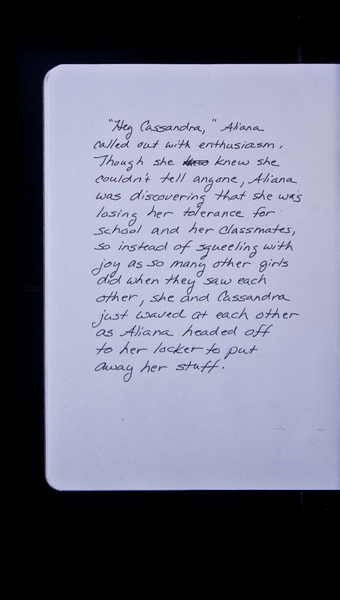 "Hey Cassandra," Aliana
called out with enthusiasm.
Though she knew she
couldn't tell anyone, Aliana
was discovering that she was
losing her tolerance for
school and her classmates,
so instead of squeeling with
joy as so many other girls
did when they saw each
other, she and Cassandra
just waved at each other
as Aliana headed off
to her locker to put
away her stuff.